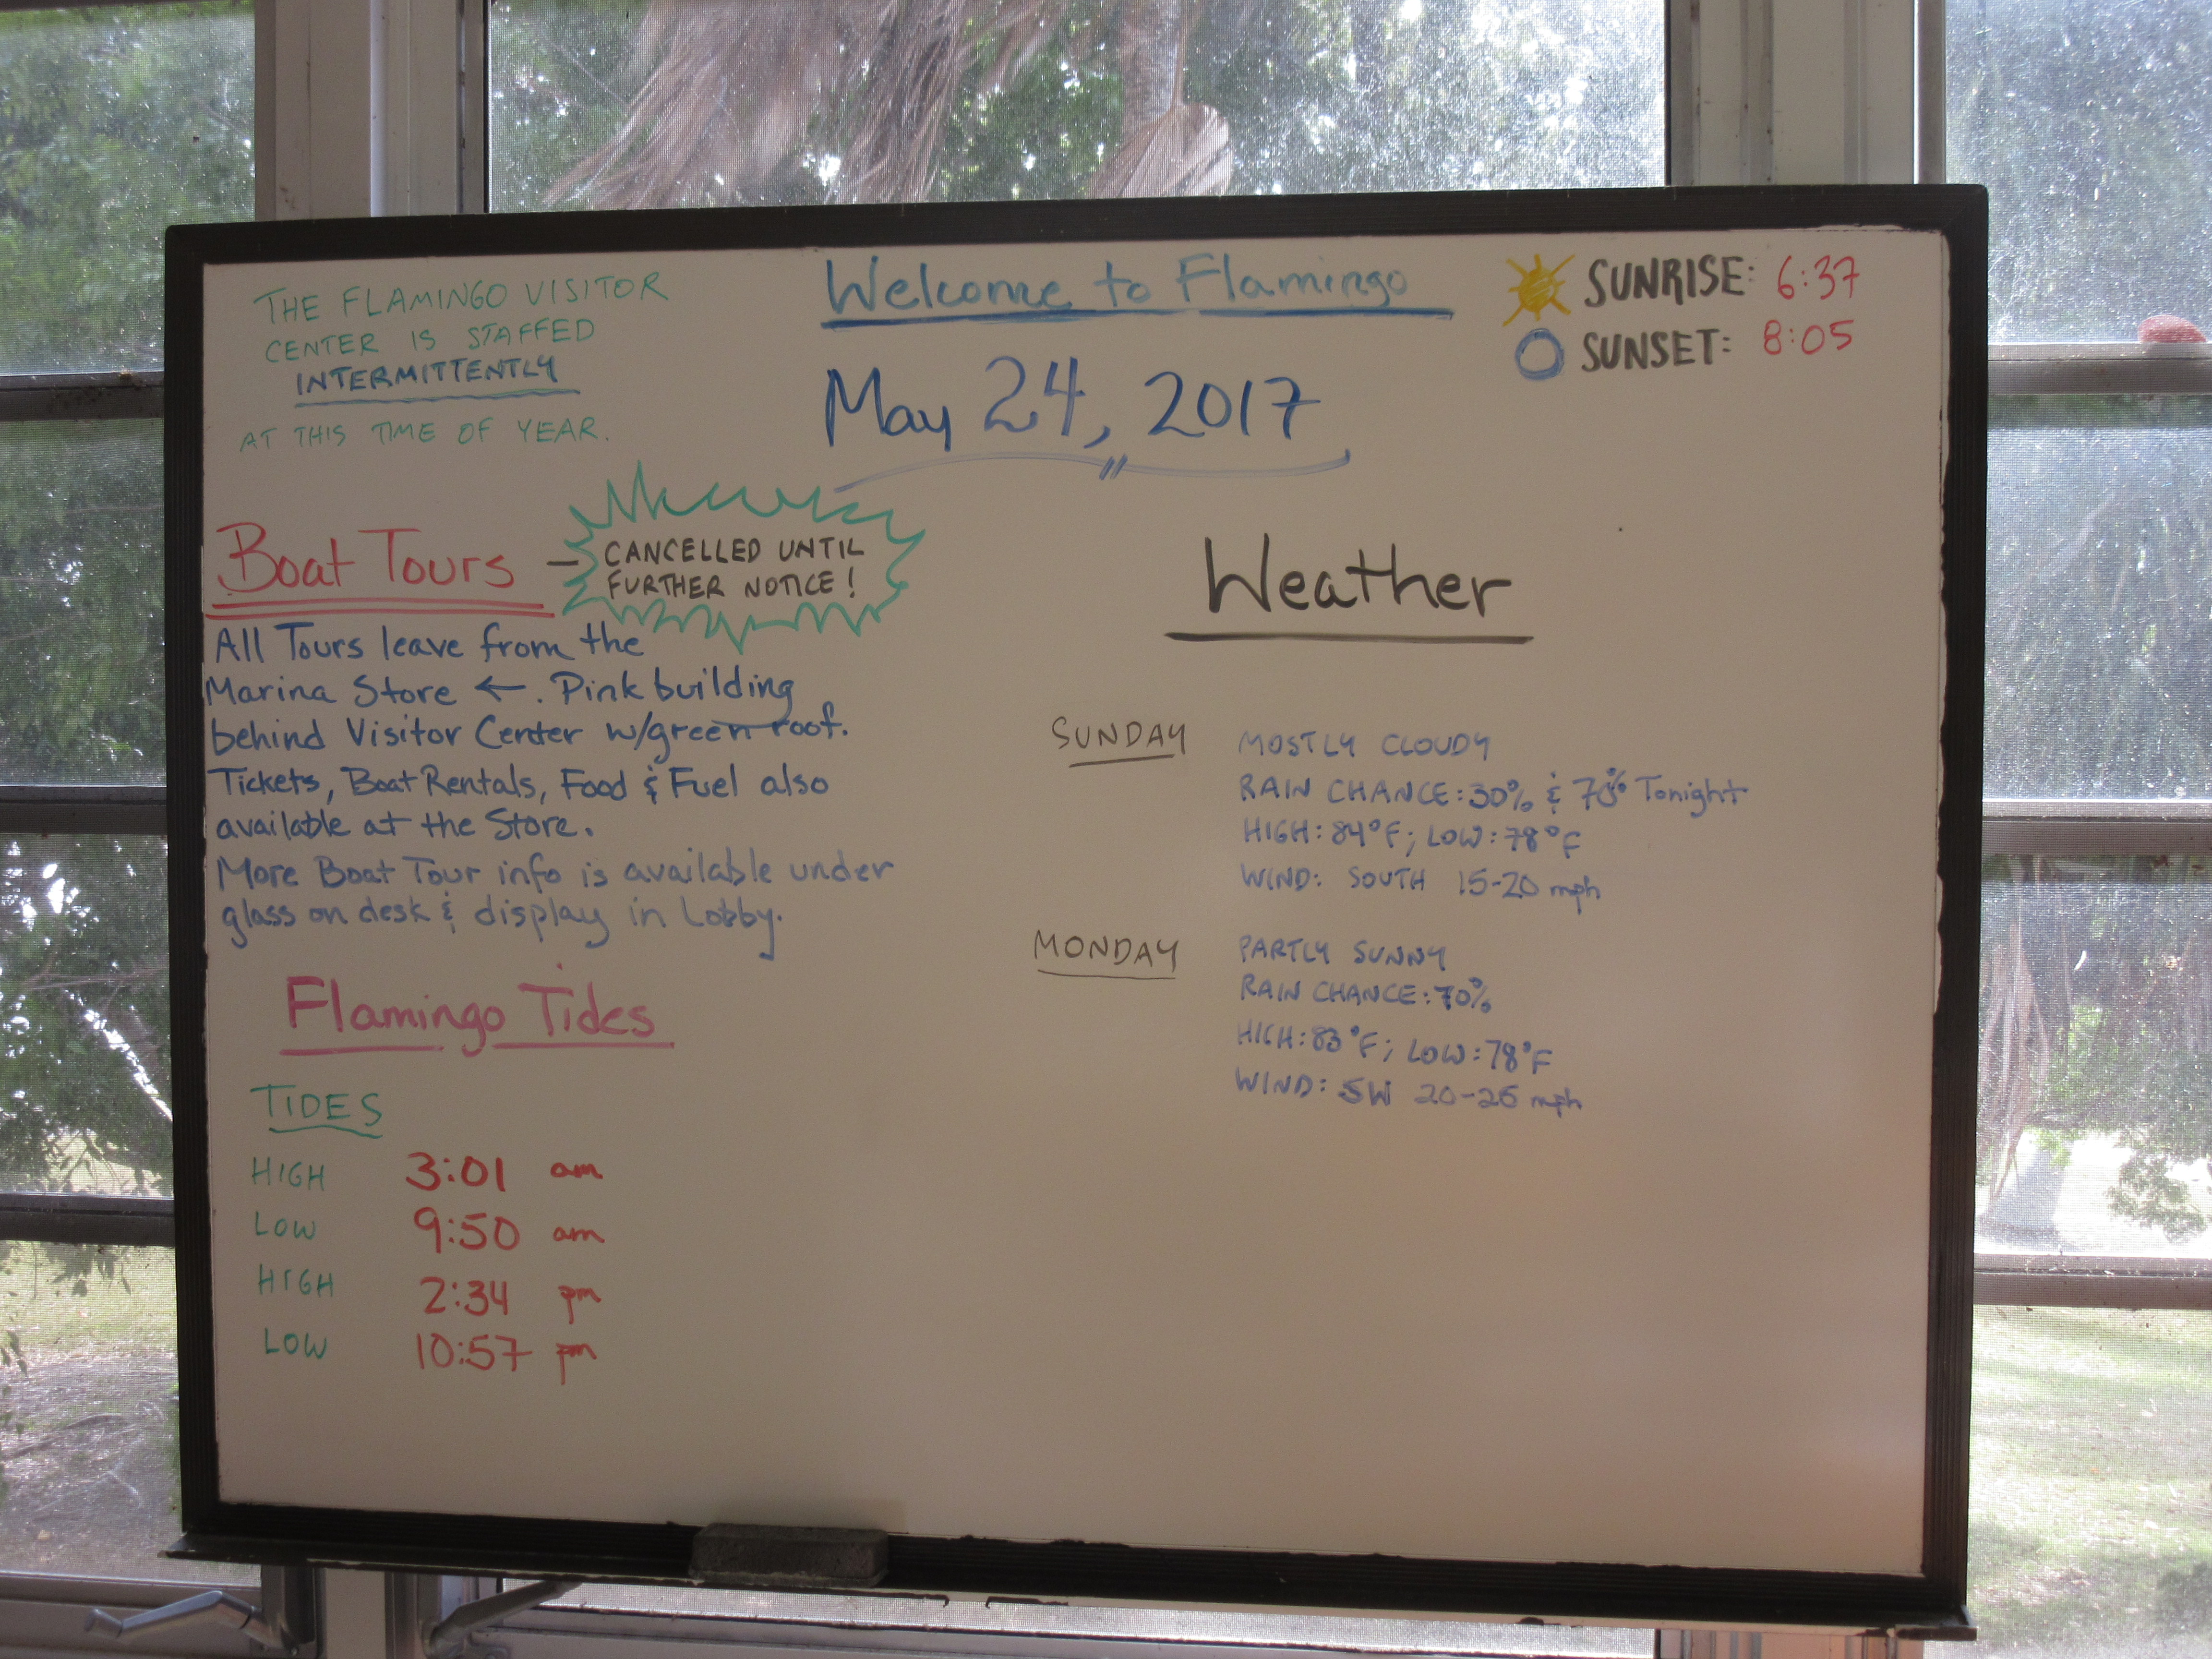 THE FLAMINGO VISITOR
CENTER IS STAFFED
INTERMITTENTLY
AT THIS TIME OF YEAR.
Welcome to Flamingo
May 24, 2017
SUNRISE: 6:37
SUNSET: 8:05
Boat Tours - CANCELLED UNTIL
FURTHER NOTICE!
All Tours leave from the
Marina Store ←. Pink building
behind Visitor Center w/green roof.
Tickets, Boat Rentals, Food & Fuel also
available at the Store.
More Boat Tour info is available under
glass on desk & display in Lobby.
Flamingo Tides
TIDES
HIGH 3:01 am
LOW 9:50 am
HIGH 2:34 pm
LOW 10:57 pm
Weather
SUNDAY MOSTLY CLOUDY
RAIN CHANCE: 30% & 70% Tonight
HIGH: 84°F; LOW: 78°F
WIND: SOUTH 15-20 mph
MONDAY PARTLY SUNNY
RAIN CHANCE: 70%
HIGH: 83°F; LOW: 78°F
WIND: SW 20-25 mph